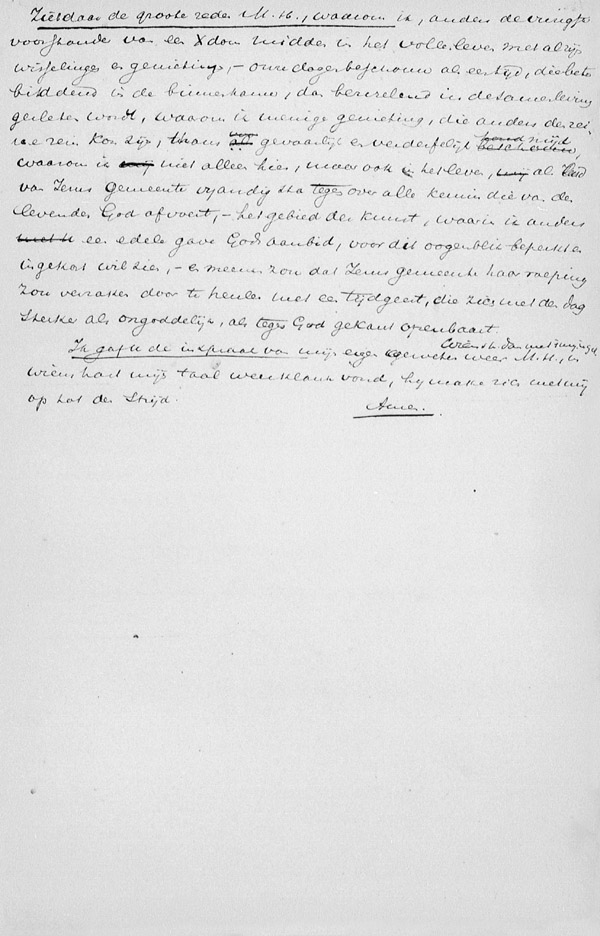 Ziet daar de groote reden M.H., waarom ik, anders de vurigste
voorstander van een Xdom midden in het volle leven met al zijn
wisselingen en genietingen, - onze dagen beschouw als een tijd, die beter
biddend in de binnenkamer, dan in de samenleving
gesleten wordt, waarom ik menige genieting, die anders de rei-
ne rein kon zijn, thans voor gevaarlijk en verderfelijk houd
waarom ik mij niet alleen hier, maar ook in het leven, mij als lid
van Jezus Gemeente vijandig sta tegen over alle kennis die van den
levenden God afvoert, - het gebied der kunst, waarin ik anders
met U een edele gave Gods aanbid, voor dit oogenblik beperkt en
ingekort wil zien, - en meenen zou dat Jezus gemeente haar roeping
zou verzaken door te heulen met een tijdgeest, die zich met den dag
sterker als ongoddelijk, als tegen God gekant openbaart.
Ik gaf U de inspraak van mijn eigen geweten weer M.H., is
er in wiens hart mijn taal weerklank vond, hij make zich met mij
op tot den Strijd.
Amen.